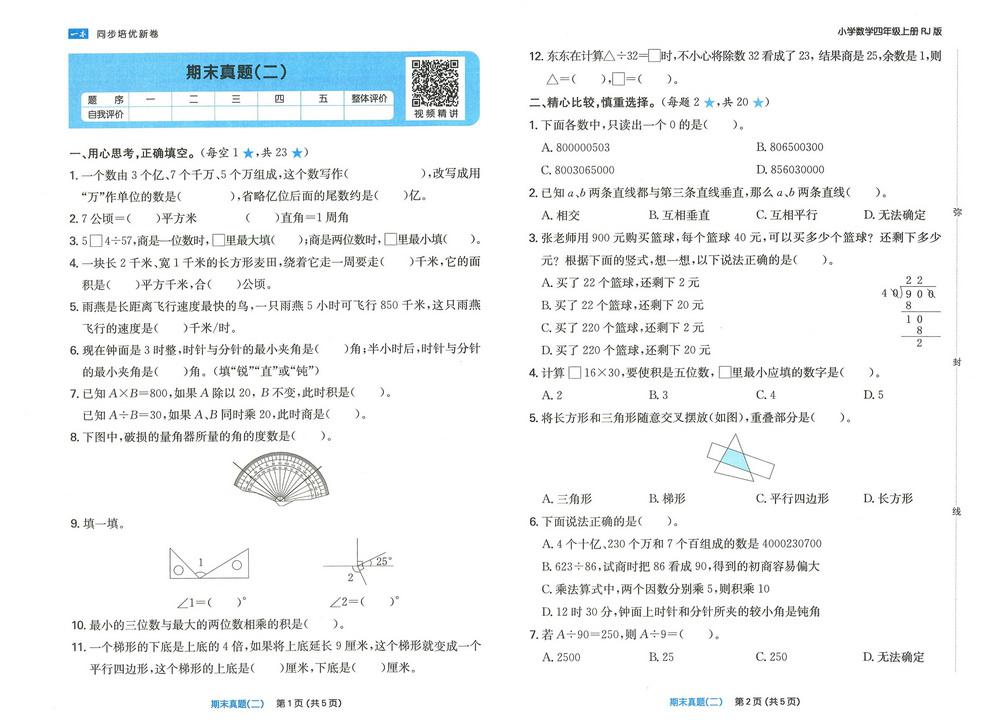 一本 同步培优新卷
期末真题(二)
题 序 一 二 三 四 五 整体评价
自我评价
视频精讲
一、用心思考,正确填空。(每空1★,共23★)
1. 一个数由3个亿、7个千万、5个万组成,这个数写作( ),改写成用
“万”作单位的数是( ),省略亿位后面的尾数约是( )亿。
2. 7公顷=( )平方米 ( )直角=1周角
3. 5□4÷57,商是一位数时,□里最大填( );商是两位数时,□里最小填( )。
4. 一块长2千米、宽1千米的长方形麦田,绕着它走一周要走( )千米,它的面
积是( )平方千米,合( )公顷。
5. 雨燕是长距离飞行速度最快的鸟,一只雨燕5小时可飞行850千米,这只雨燕
飞行的速度是( )千米/时。
6. 现在钟面是3时整,时针与分针的最小夹角是( )角;半小时后,时针与分针
的最小夹角是( )角。(填“锐”“直”或“钝”)
7. 已知A×B=800,如果A除以20,B不变,此时积是( )。
已知A÷B=30,如果A、B同时乘20,此时商是( )。
8. 下图中,破损的量角器所量的角的度数是( )。
9. 填一填。
1
25°
2
∠1=( )° ∠2=( )°
10. 最小的三位数与最大的两位数相乘的积是( )。
11. 一个梯形的下底是上底的4倍,如果将上底延长9厘米,这个梯形就变成一个
平行四边形,这个梯形的上底是( )厘米,下底是( )厘米。
期末真题(二) 第1页(共5页)
小学数学四年级上册RJ版
12. 东东在计算△÷32=□时,不小心将除数32看成了23,结果商是25,余数是1,则
△=( ),□=( )。
二、精心比较,慎重选择。(每题2★,共20★)
1. 下面各数中,只读出一个0的是( )。
A. 800000503 B. 806500300
C. 8003065000 D. 856030000
2. 已知a、b两条直线都与第三条直线垂直,那么a、b两条直线( )。
A. 相交 B. 互相垂直 C. 互相平行 D. 无法确定
3. 张老师用900元购买篮球,每个篮球40元,可以买多少个篮球?还剩下多少
元?根据下面的竖式,想一想,以下说法正确的是( )。
A. 买了22个篮球,还剩下2元
B. 买了22个篮球,还剩下20元
C. 买了220个篮球,还剩下2元
D. 买了220个篮球,还剩下20元
2 2
4 0)9 0 0
8
1 0
8
2
4. 计算□16×30,要使积是五位数,□里最小应填的数字是( )。
A. 2 B. 3 C. 4 D. 5
5. 将长方形和三角形随意交叉摆放(如图),重叠部分是( )。
A. 三角形 B. 梯形 C. 平行四边形 D. 长方形
6. 下面说法正确的是( )。
A. 4个十亿、230个万和7个百组成的数是4000230700
B. 623÷86,试商时把86看成90,得到的初商容易偏大
C. 乘法算式中,两个因数分别乘5,则积乘10
D. 12时30分,钟面上时针和分针所夹的较小角是钝角
7. 若A÷90=250,则A÷9=( )。
A. 2500 B. 25 C. 250 D. 无法确定
期末真题(二) 第2页(共5页)
弥
封
线